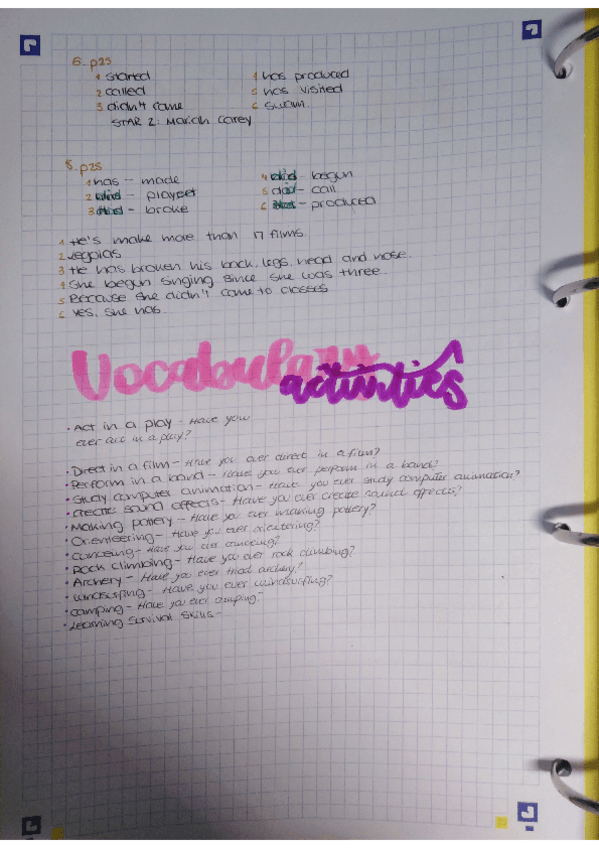 6. p25
1 started
2 called
3 didn't come
STAR 2: Mariah Carey
4 has produced
5 has visited
6 swum.
8. p25
1 has - made
2 - played
3 - broke
4 - begun
5 - call
6 - produced
1 He's make more than 17 films.
2 vegoias
3 He has broken his back, legs, head and nose.
4 She begun singing since she was three.
5 Because she didn't come to classes
6 Yes, she has.
Vocabulary activities
· Act in a play - Have you
ever act in a play?
· Direct in a film - Have you ever direct in a film?
· Perform in a band - Have you ever perform in a band?
· Study computer animation - Have you ever study computer animation?
· Create sound effects - Have you ever create sound effects?
· Making pottery - Have you ever making pottery?
· Orienteering - Have you ever orientering?
· Canoeing - Have you ever canoeing?
· Rock climbing - Have you ever rock climbing?
· Archery - Have you ever tried archery?
· windsurfing - Have you ever windsurfing?
· camping - Have you ever camping?
· Learning Survival Skills -